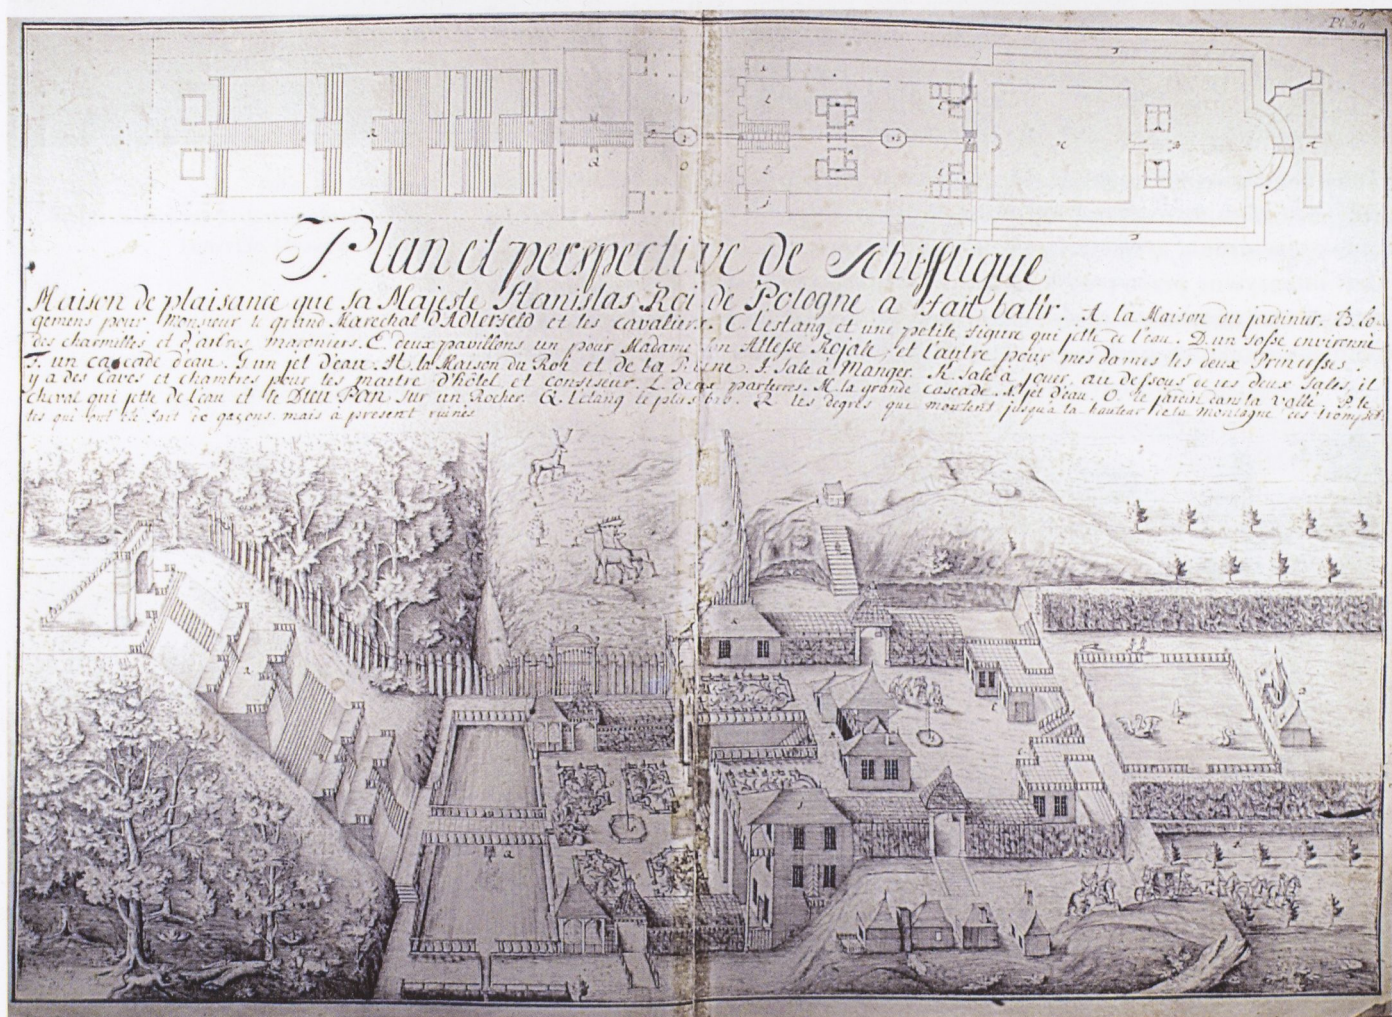 Pl. 20
Plan et perspective de Schifflique
Maison de plaisance que Sa Majeste Stanislas Roi de Pologne a fait batir. A. la Maison du jardinier. B. lo-
gemens pour Monsieur le grand Marechal d'Adlerfeld et les cavaliers. C. l'estang et une petite figure qui jette de l'eau. D. un fosse environné
des charmilles et d'autres maroniers. E. deux pavillons un pour Madame son Altesse Rojale, et l'autre pour mes dames les deux Princesses.
F. un cascade d'eau. G un jet d'eau. H. la Maison du Roh et de la Reine. J. Sale à Manger. K. Sale à jouer, au dessous de ces deux Sales, il
y a des Caves et chambres pour les maitre d'hôtel et confiseur. L. deux parterres. M. la grande Cascade. N. jet d'eau. O. le jardin dans la volte. P. le
cheval qui jette de l'eau et le Dieu Pan sur un Rocher. Q. l'etang le plus bas. R les degrés que montent jusqu'a la hauteur de la montagne des
tes qui ont été fait de gazons. mais à present ruinés